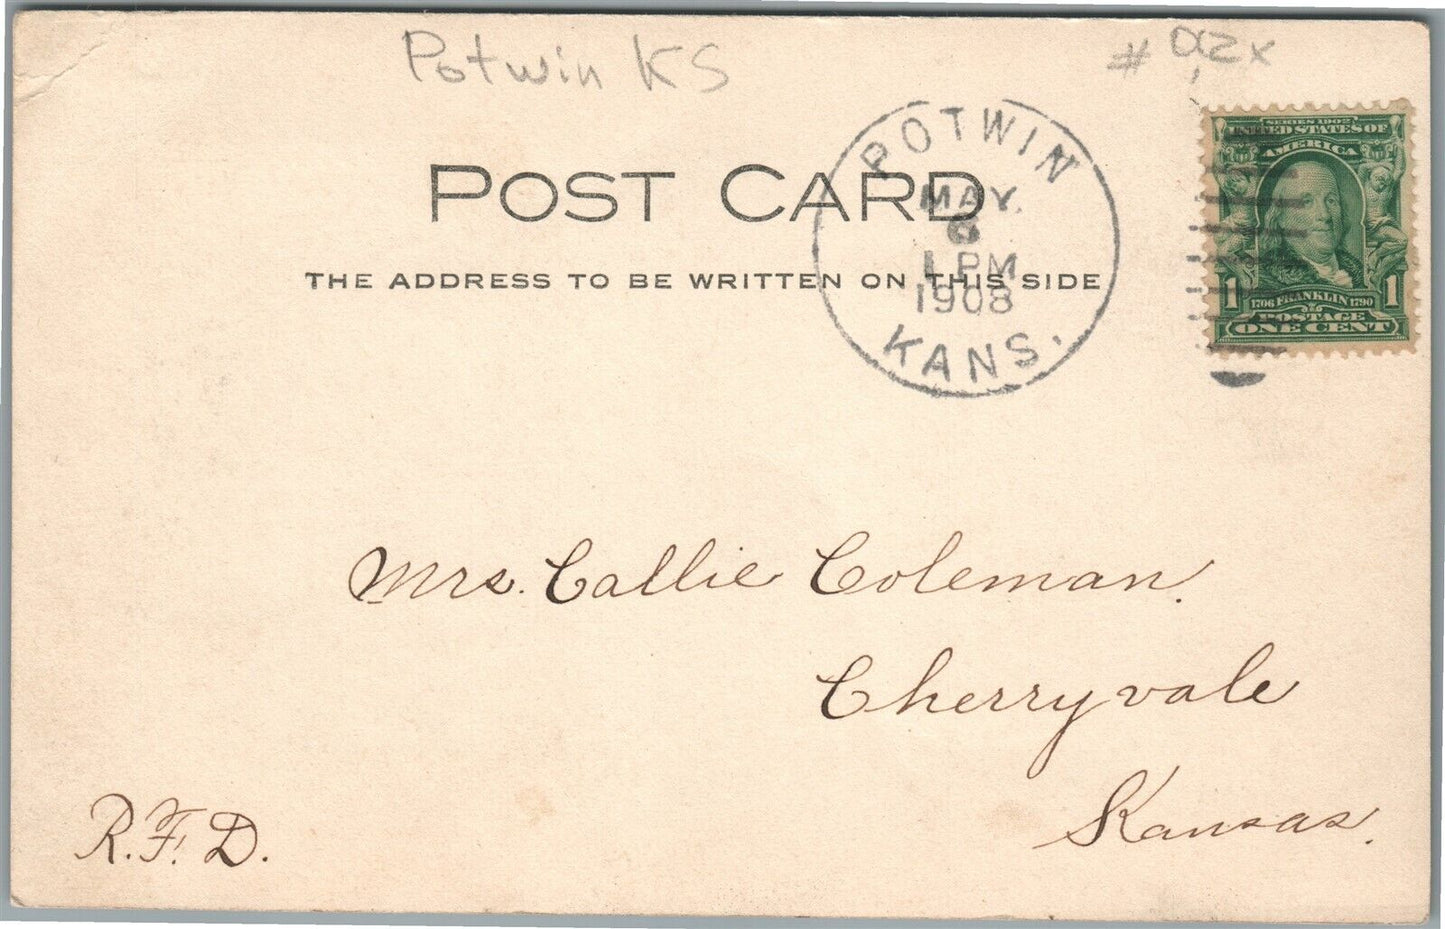 Potwin KS
POST CARD
THE ADDRESS TO BE WRITTEN ON THIS SIDE
POTWIN
MAY.
6
1 PM
1908
KANS.
SERIES 1902
UNITED STATES OF
AMERICA
1 1
1706 FRANKLIN 1790
POSTAGE
ONE CENT
Mrs. Callie Coleman.
Cherryvale
Kansas.
R.F.D.